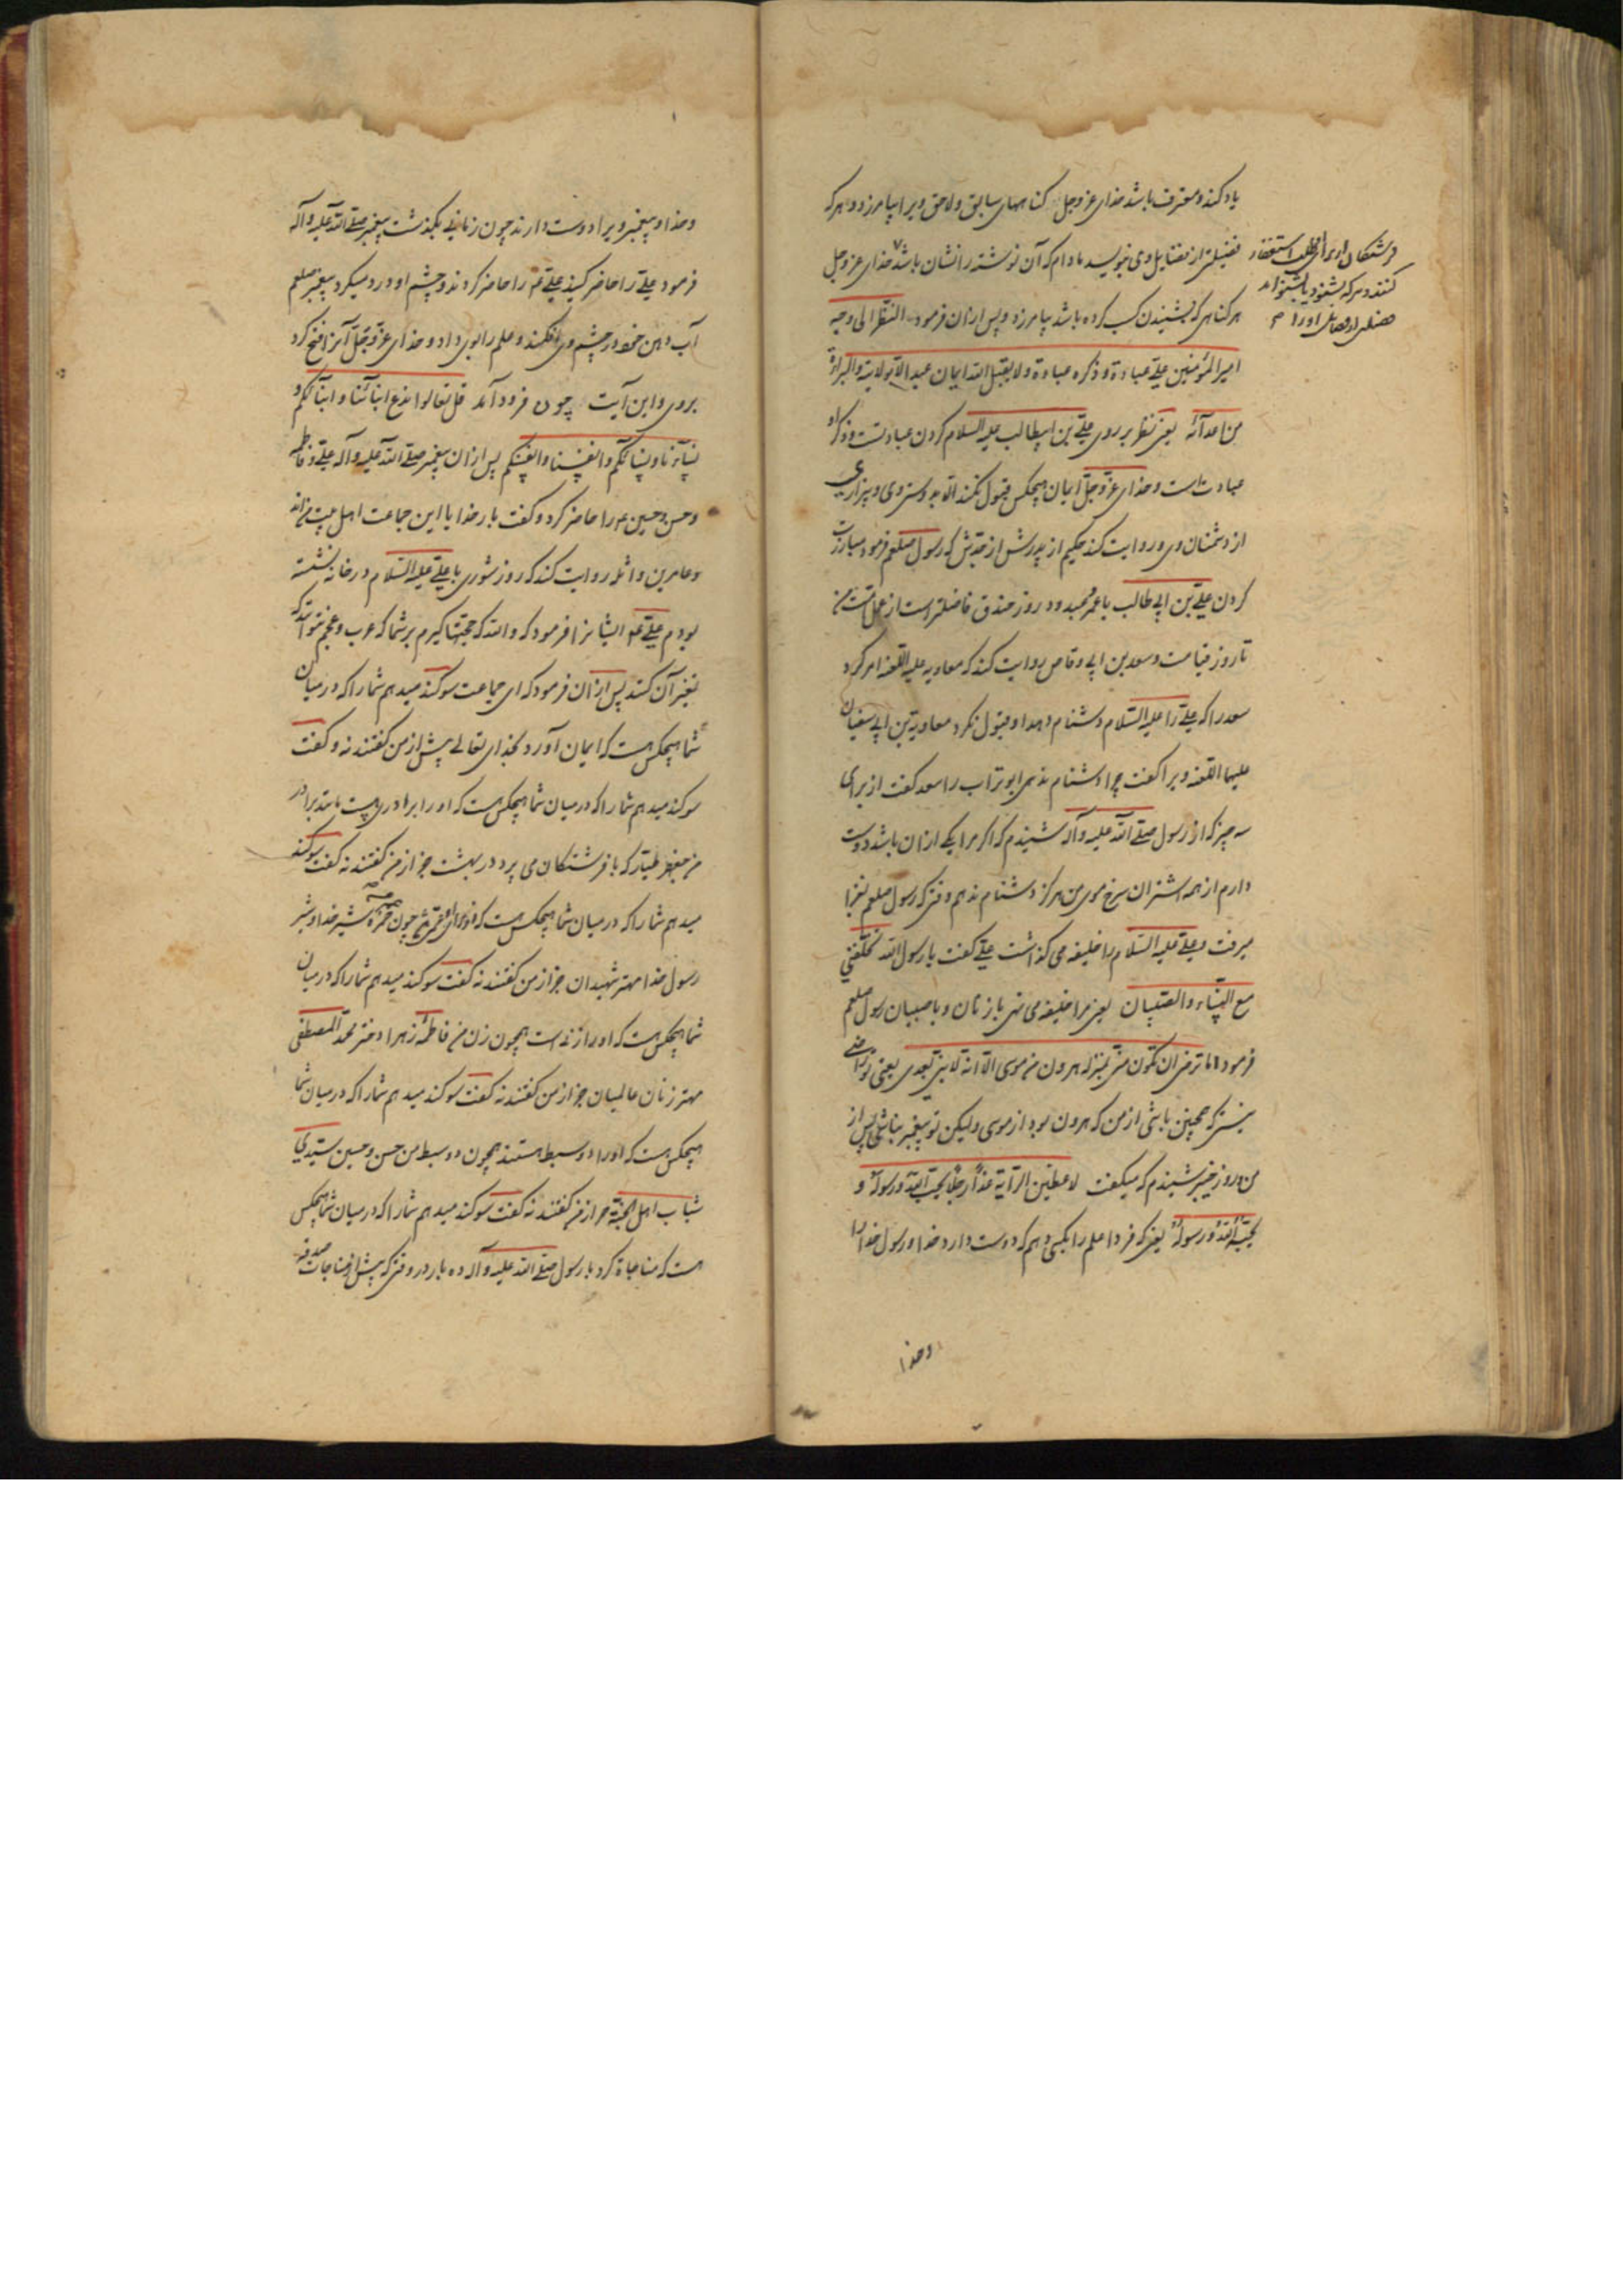 یاد کند و معترف باشد خدای عز و جل کناههای سابق و لاحق ویرا بیامرزد و هر که
فضیلتی از فضایل وی بنویسد مادام که آن نوشته را نشان باشد خدای عز و جل
هر کناهی که بشنیدن کسب کرده باشد بیامرزد و پس ازان فرمود النظر الی وجه
امیر المؤمنین علی عبادة و ذکره عبادة و لا یقبل الله ایمان عبد الا بولایته و البراءة
من اعدآئه یعنی نظر بر روی علی بن ابیطالب علیه السلام کردن عبادتست و ذکر او
عبادت است و خدای عز و جل ایمان هیچکس قبول نکند الا بدوستی وی و بیزاری
از دشمنان وی و روایت کند حکیم از پدرش از جدش که رسول صلعم فرمود مبارزت
کردن علی بن ابی طالب با عمرو عبدود روز خندق فاضلتر است از عمل امت من
تا روز قیامت و سعد بن ابی وقاص روایت کند که معاویه علیه اللعنه امر کرد
سعد را که علی را علیه السلام دشنام دهد او قبول نکرد معاویة بن ابی سفیان
علیهما اللعنه ویرا کفت چرا دشنام ندهی ابو تراب را سعد کفت از برای
سه چیز که از رسول صلی الله علیه و آله شنیدم که اکر مرا یکی ازان باشد دوست
دارم از همه اشتران سرخ موی من هرکز دشنام ندهم وقتی که رسول صلعم بغزا
میرفت و علی علیه السلام را خلیفه می کذاشت علی کفت یا رسول الله تخلفنی
مع النساء و الصبیان یعنی مرا خلیفه می کنی با زنان و با صبیان رسول صلعم
فرمود اما ترضی ان تکون منی بمنزله هرون من موسی الا انه لا نبی بعدی یعنی تو راضی
نیستی که همچنین باشی از من که هرون بود از موسی و لیکن تو پیغمبر نباشی پس از
من و روز خیبر شنیدم که میکفت لاعطین الرایة غدا رجلا یحب الله و رسوله و
یحبه الله و رسوله یعنی که فردا علم را بکسی دهم که دوست دارد خدا و رسول خدا را
و خدا
فرشتکان از برای او طلب استغفار
کنند و هر که بشنود یا بشنواند
فضیلتی از فضایل او را
و خدا و پیغمبر ویرا دوست دارند چون زمانی بکذشت پیغمبر صلی الله علیه و آله
فرمود علی را حاضر کنید علی را حاضر کردند و چشم او درد میکرد پیغمبر صلعم
آب دهن خود در چشم وی افکند و علم را بوی داد و خدای عز و جل آنرا فتح کرد
بروی و این آیت چون فرود آمد قل تعالوا ندع ابنآئنا و ابنآئکم و
نسآئنا و نسآئکم و انفسنا و انفسکم پس ازان پیغمبر صلی الله علیه و آله علی و فاطمه
و حسن و حسین را حاضر کرد و کفت بار خدایا این جماعت اهل بیت من اند
و عامر بن واثله روایت کند که روز شوری با علی علیه السلام در خانه نشسته
بودم علی ایشانرا فرمود که والله که حجتها کیرم بر شما که عرب و عجم نتواند که
تغیر آن کنند پس ازان فرمود که ای جماعت سوکند میدهم شما را که در میان
شما هیچکس هست که ایمان آورد بخدای تعالی پیش از من کفتند نه و کفت
سوکند میدهم شما را که در میان شما هیچکس هست که او را برادری هست مانند برادر
من جعفر طیار که با فرشتکان می پرد در بهشت جز از من کفتند نه کفت سوکند
میدهم شما را که در میان شما هیچکس هست که او را عمی چون حمزه شیر خدا و شیر
رسول خدا مهتر شهیدان جز از من کفتند نه کفت سوکند میدهم شما را که در میان
شما هیچکس هست که او را زنی است همچون زن من فاطمه زهرا دختر محمد المصطفی
مهتر زنان عالمیان جز از من کفتند نه کفت سوکند میدهم شما را که در میان شما
هیچکس هست که او را دو سبط هستند همچون دو سبط من حسن و حسین سیدی
شباب اهل الجنة جز از من کفتند نه کفت سوکند میدهم شما را که در میان شما هیچکس
هست که مناجاة کرد با رسول صلی الله علیه و آله ده بار در وقتی که پیش از مناجات صدقه